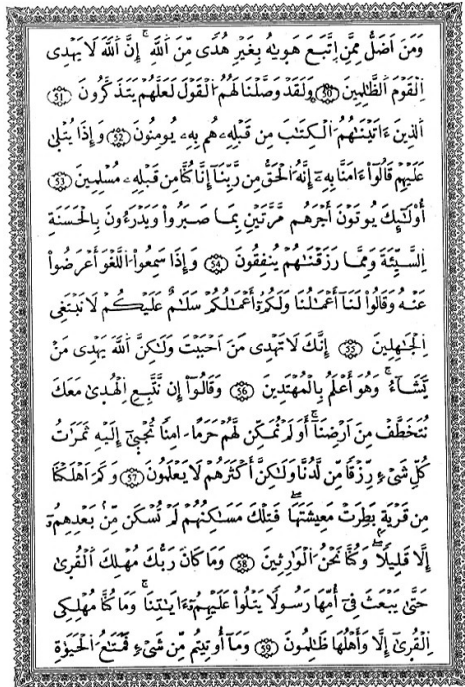 وَمَنَ اَضَلُّ مِمَّنِ اِتَّبَعَ هَوٜيٰهُ بِغَيْرِ هُدىً مِّنَ اَللَّهِ إِنَّ اَللَّهَ لَا يَهْدِى
اِلْقَوْمَ اَلظَّـٰلِمِينَ 50 وَلَقَدْ وَصَّلْنَا لَهُمُ اَلْقَوْلَ لَعَلَّهُمْ يَتَذَكَّرُونَ 51
اَلذِينَ ءَاتَيْنَـٰهُمُ اَلْكِتَـٰبَ مِن قَبْلِهِۦ هُم بِهِۦ يُومِنُونَ 52 وَإِذَا يُتْلٜىٰ
عَلَيْهِمْ قَالُوٓاْ ءَامَنَّا بِهِۦٓ إِنَّهُ اَلْحَقُّ مِن رَّبِّنَآ إِنَّا كُنَّا مِن قَبْلِهِۦ مُسْلِمِينَ 53
أُوْلَـٰٓئِكَ يُوتَوْنَ أَجْرَهُم مَّرَّتَيْنِ بِمَا صَبَرُواْ وَيَدْرَءُونَ بِالْحَسَنَةِ
اِلسَّيِّئَةَ وَمِمَّا رَزَقْنَـٰهُمْ يُنفِقُونَ 54 وَإِذَا سَمِعُواْ اَللَّغْوَ أَعْرَضُواْ
عَنْهُ وَقَالُواْ لَنَآ أَعْمَـٰلُنَا وَلَكُمُۥٓ أَعْمَـٰلُكُمْ سَلَـٰمٌ عَلَيْكُمْ لَا نَبْتَغِى
اِلْجَـٰهِلِينَ 55 إِنَّكَ لَا تَهْدِى مَنَ اَحْبَبْتَ وَلَـٰكِنَّ اَللَّهَ يَهْدِى مَنْ
يَّشَآءُ وَهُوَ أَعْلَمُ بِالْمُهْتَدِينَ 56 وَقَالُوٓاْ إِن نَّتَّبِعِ اِلْهُدٜىٰ مَعَكَ
نُتَخَطَّفْ مِنَ اَرْضِنَآ أَوَلَمْ نُمَكِّن لَّهُمْ حَرَماً اٰمِناً تُجْبٜىٰٓ إِلَيْهِ ثَمَرَٰتُ
كُلِّ شَىْءٍ رِّزْقاً مِّن لَّدُنَّا وَلَـٰكِنَّ أَكْثَرَهُمْ لَا يَعْلَمُونَ 57 وَكَمَ اَهْلَكْنَا
مِن قَرْيَةٍ بَطِرَتْ مَعِيشَتَهَا فَتِلْكَ مَسَـٰكِنُهُمْ لَمْ تُسْكَن مِّنۢ بَعْدِهِمُۥٓ
إِلَّا قَلِيلاً وَكُنَّا نَحْنُ اَلْوَٰرِثِينَ 58 وَمَا كَانَ رَبُّكَ مُهْلِكَ اَلْقُرٜىٰ
حَتَّىٰ يَبْعَثَ فِىٓ أُمِّهَا رَسُولاً يَتْلُواْ عَلَيْهِمُۥٓ ءَايَـٰتِنَا وَمَا كُنَّا مُهْلِكِى
اِلْقُرٜىٰٓ إِلَّا وَأَهْلُهَا ظَـٰلِمُونَ 59 وَمَآ أُوتِيتُم مِّن شَىْءٍ فَمَتَـٰعُ اَلْحَيَوٰةِ